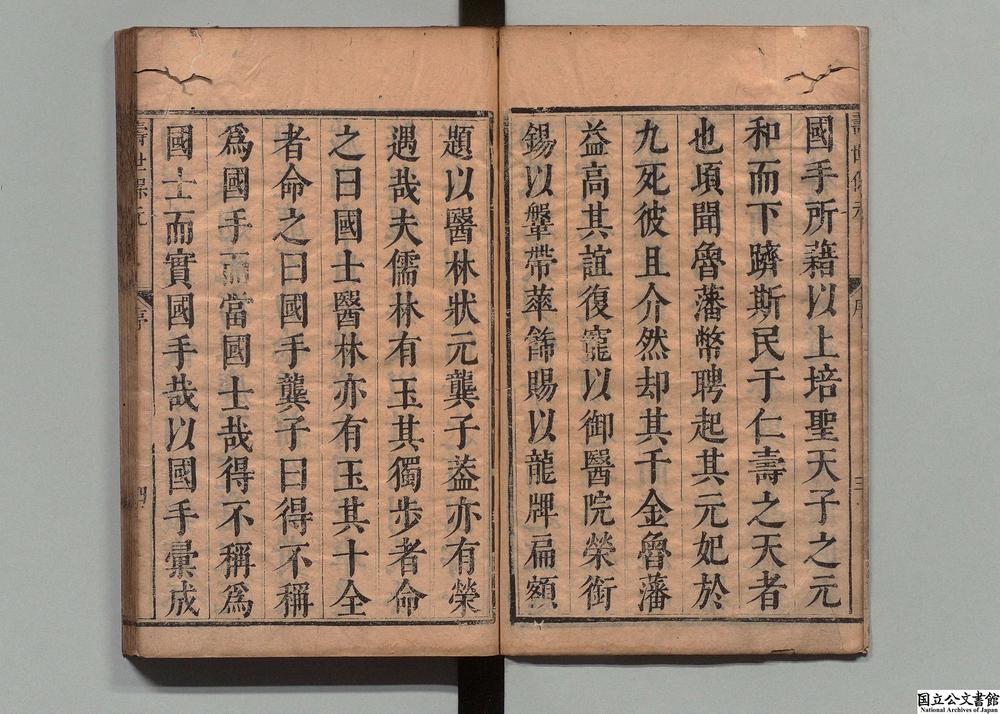 壽世保元
序
三
國手所藉以上培聖天子之元
和而下躋斯民于仁壽之天者
也頃聞魯藩幣聘起其元妃於
九死彼且介然却其千金魯藩
益高其誼復寵以御醫院榮銜
錫以鞶帶華餙賜以龍牌扁額
題以醫林狀元龔子葢亦有榮
遇哉夫儒林有玉其獨步者命
之曰國士醫林亦有玉其十全
者命之曰國手龔子曰得不稱
爲國手而當國士哉得不稱爲
國士而實國手哉以國手彙成
壽世保元
序
四
国立公文書館
National Archives of Japan